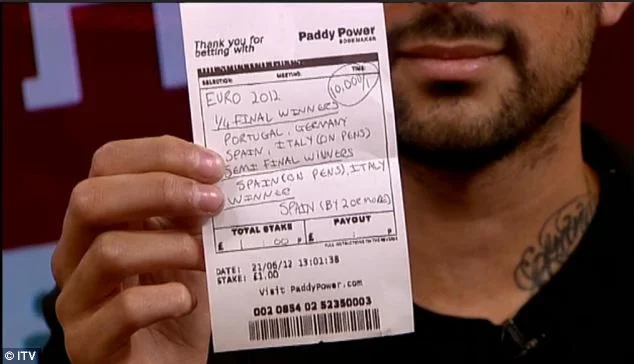 Thank you for
betting with
Paddy Power
BOOKMAKER
SELECTION MEETING TIME
10,000/1
EURO 2012
1/4 FINAL WINNERS
PORTUGAL, GERMANY
SPAIN, ITALY (ON PENS)
SEMI FINAL WINNERS
SPAIN (ON PENS), ITALY
WINNER
SPAIN (BY 2 OR MORE)
TOTAL STAKE PAYOUT
£ 1 : 00 P £ : P
FULL INSTRUCTIONS ON THE REVERSE
DATE: 21/06/12 13:01:38
STAKE: £1.00
Visit PaddyPower.com
002 0854 02 52350003
© ITV